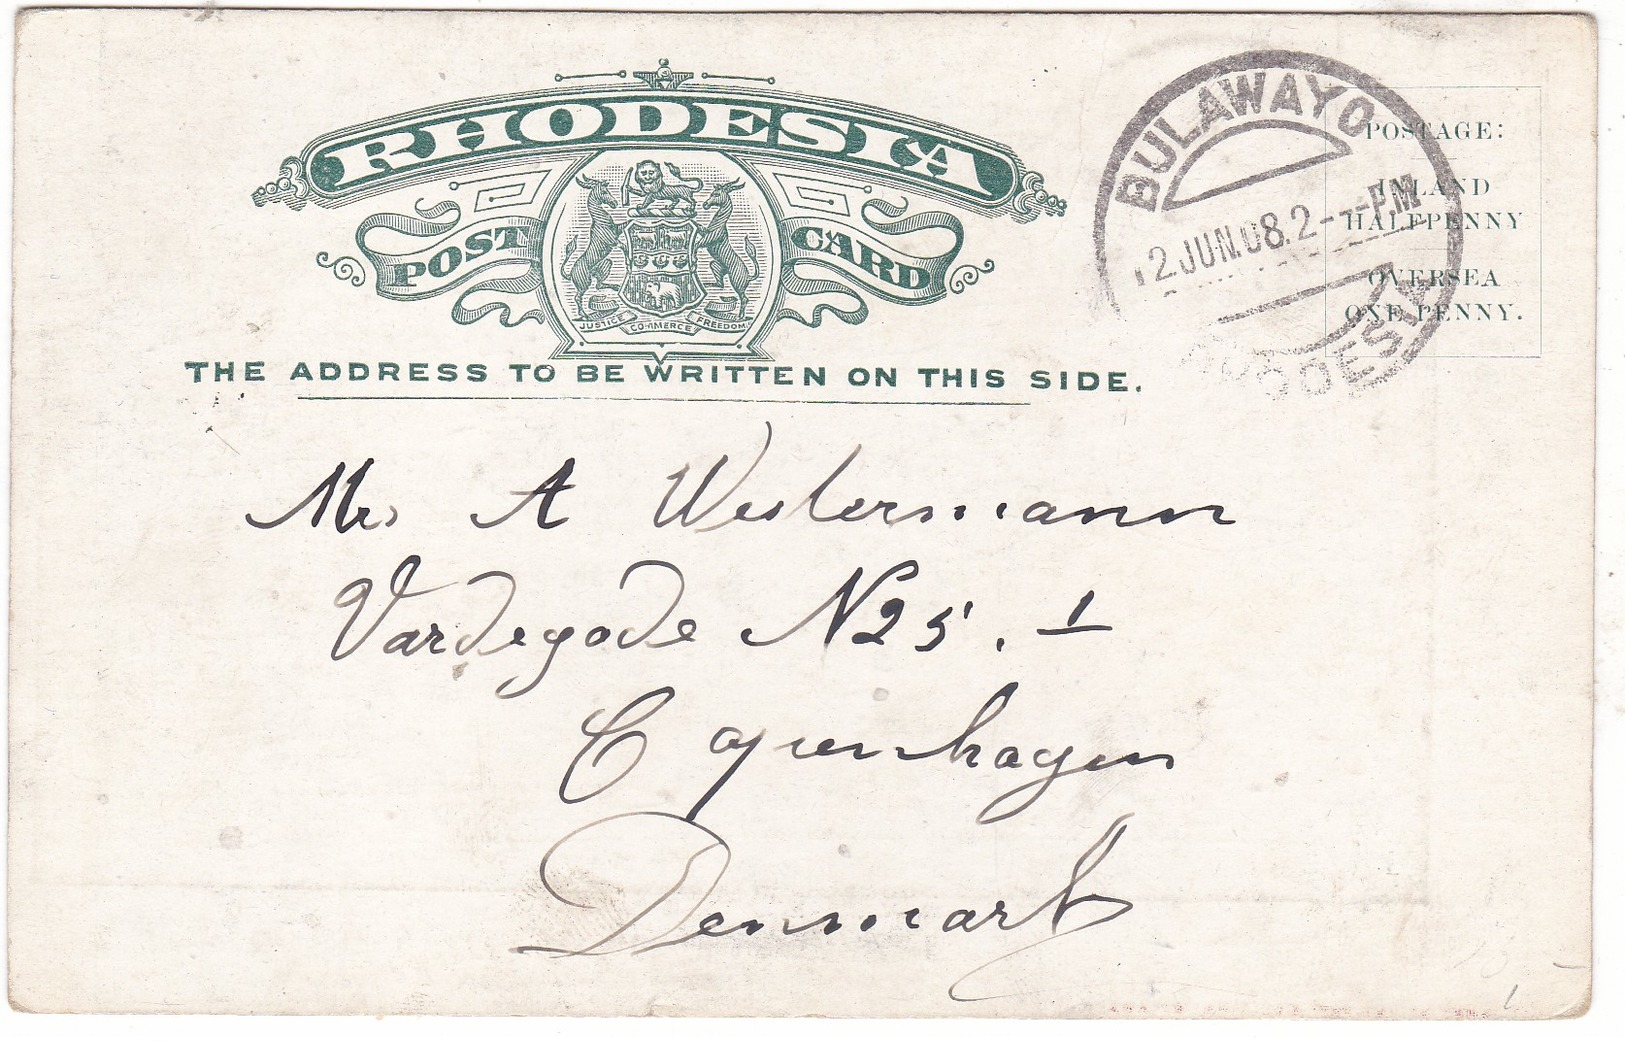 RHODESIA
POST CARD
JUSTICE COMMERCE FREEDOM
THE ADDRESS TO BE WRITTEN ON THIS SIDE.
BULAWAYO
12 JUN.08.2--PM
RHODESIA
POSTAGE:
INLAND
HALFPENNY
OVERSEA
ONE PENNY.
Mrs A Westermann
Vardegade N25. 1
Copenhagen
Denmark